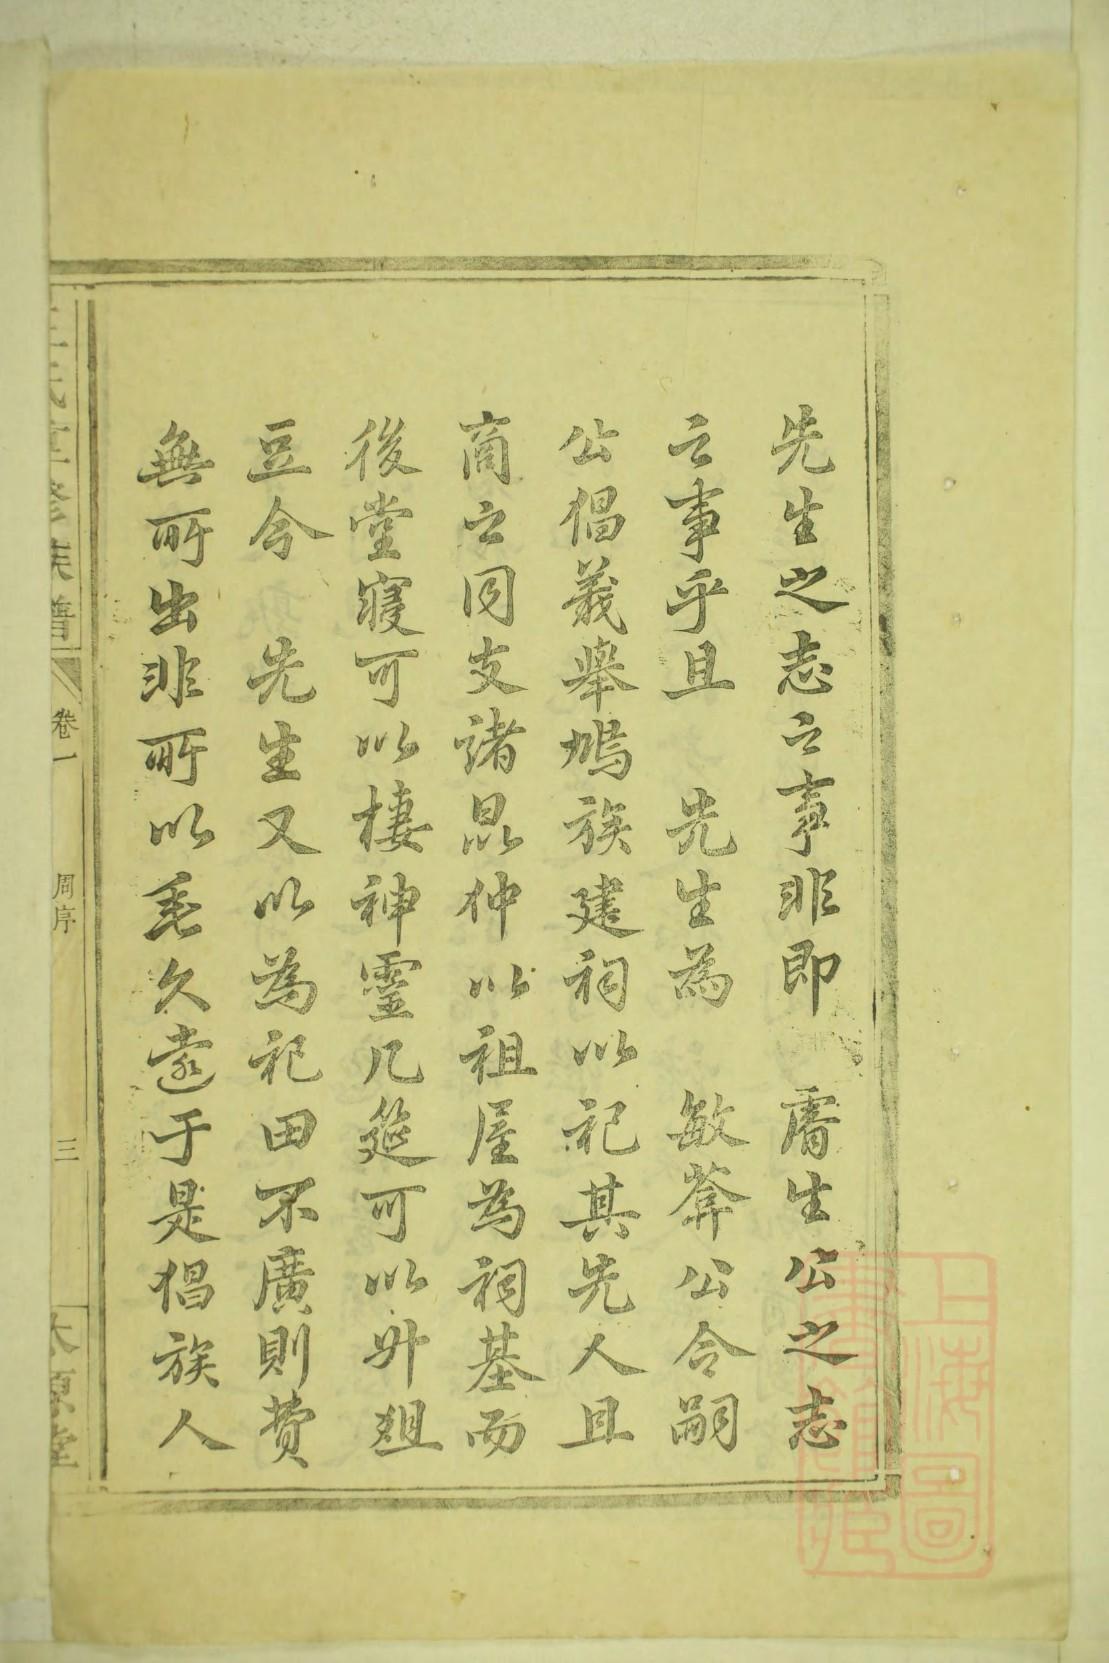 先生之志之事非即　膺生公之志
之事乎且　先生為　敏葊公令嗣
公倡義舉鳩族建祠以祀其先人且
商之同支諸昆仲以祖屋為祠基而
後堂寢可以棲神靈几筵可以升俎
豆今　先生又以為祀田不廣則費
無所出非所以垂久遠于是倡族人
王氏重修族譜
卷一
周序
三
太原堂
上海圖
書館藏